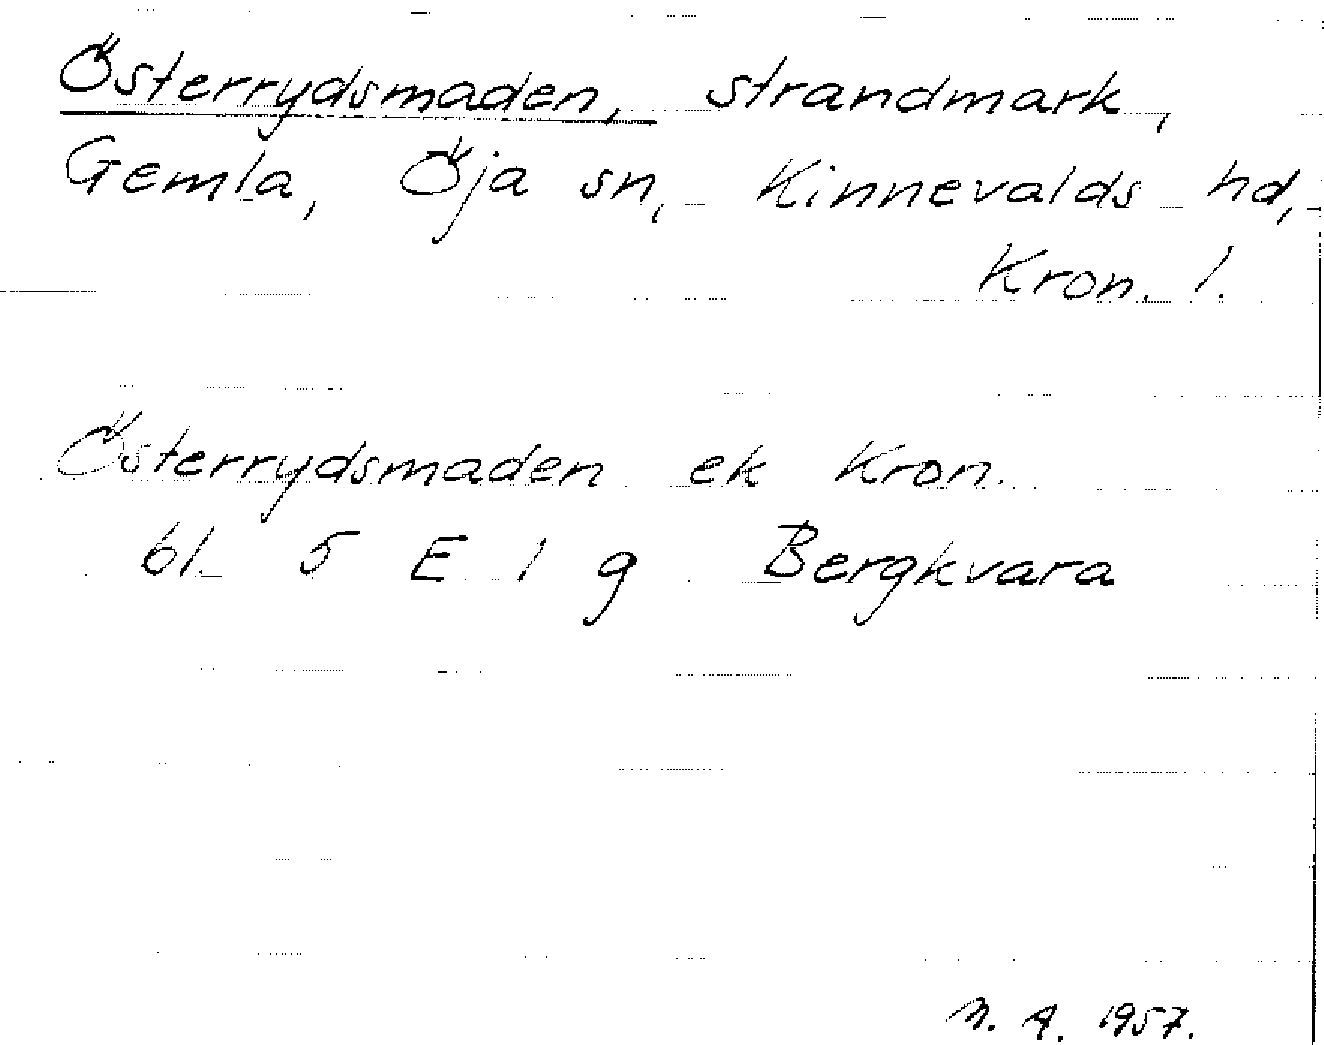 Österrydsmaden, strandmark,
Gemla, Öja sn, Kinnevalds hd,
Kron. l.
Österrydsmaden ek Kron.
bl. 5 E 1 g Bergkvara
M. A. 1957.